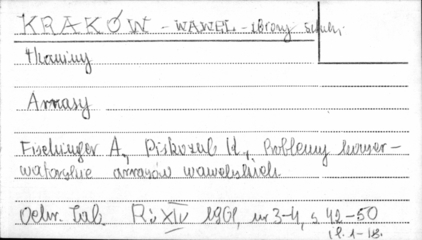 KRAKÓW - WAWEL - zbiory sztuki
tkaniny
Arrasy
Fischinger A., Piskozub H., Problemy konser-
watorskie arrasów wawelskich
Ochr. Zab. R: XIV 1961, nr 3-4, s 42-50
il. 1-18.